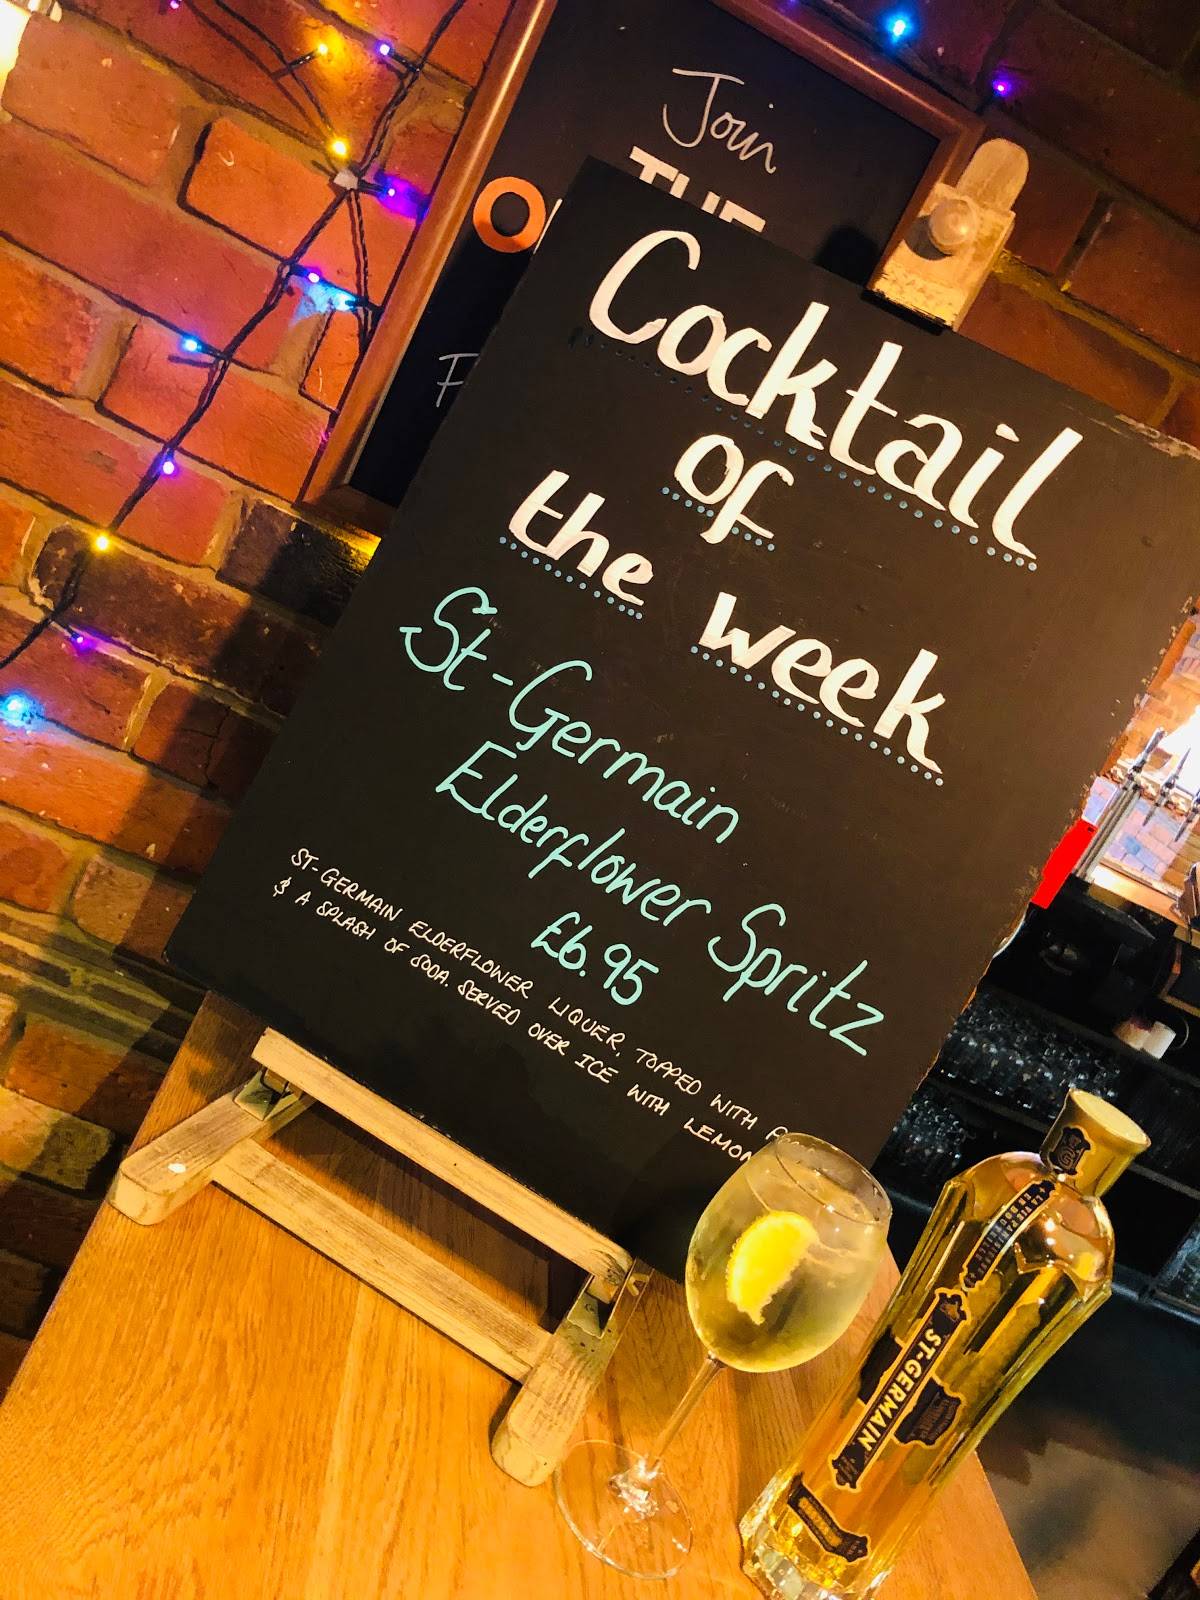 Join
THE
Cocktail
of
the week
St-Germain
Elderflower Spritz
£6.95
ST-GERMAIN ELDERFLOWER LIQUER, TOPPED WITH
& A SPLASH OF SODA. SERVED OVER ICE WITH LEMON
ST-GERMAIN